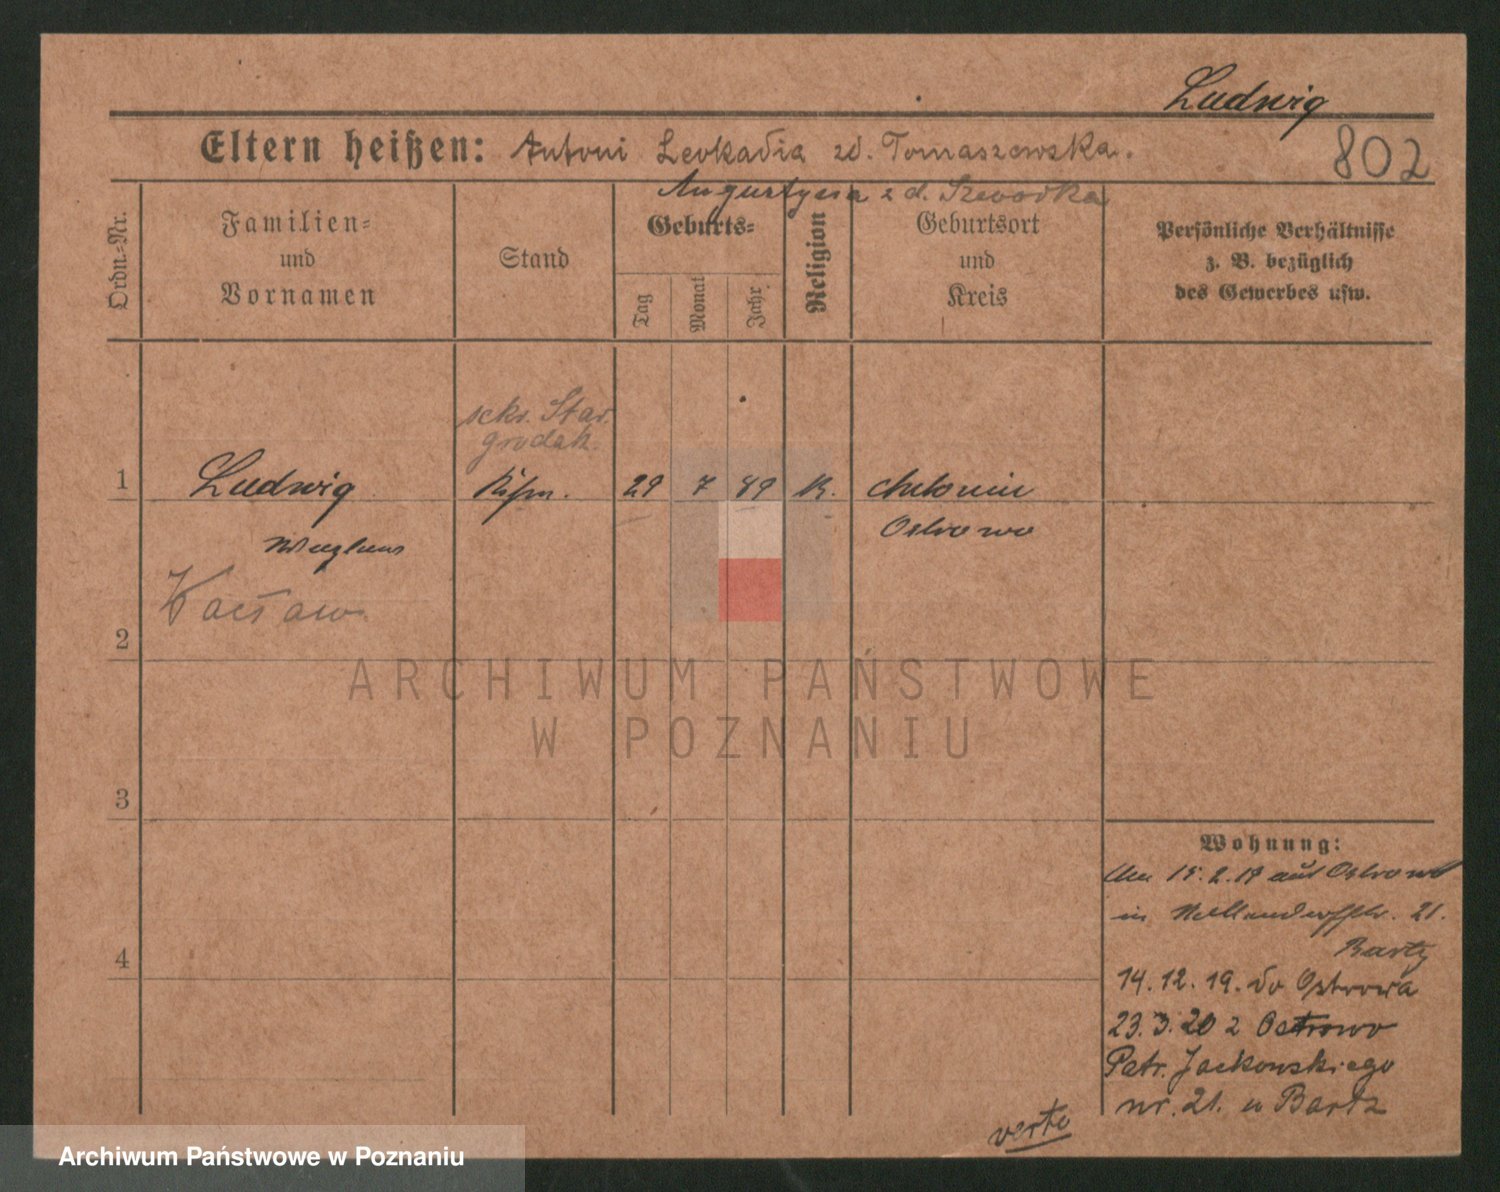 Ludwig
Eltern heißen: Antoni Leokadia zd. Tomaszewska.
802
Augustyna z d. Szewodka
Ordn.-Nr.
Familien-
und
Vornamen
Stand
Geburts-
Tag
Monat
Jahr
Religion
Geburtsort
und
Kreis
Persönliche Verhältnisse
z. B. bezüglich
des Gewerbes usw.
sekr. Star.
grodzk.
1 Ludwig Kfm. 29 7 89 K. Antonin
Ostrowo
Wacław
2
ARCHIWUM PAŃSTWOWE
W POZNANIU
3
Wohnung:
15.2.19 aus Ostrowo
in 21.
Bartz
4
14.12.19. do Ostrowa
23.3.20 z Ostrowo
Patr. Jackowskiego
nr. 21. u Bartz
verte
Archiwum Państwowe w Poznaniu